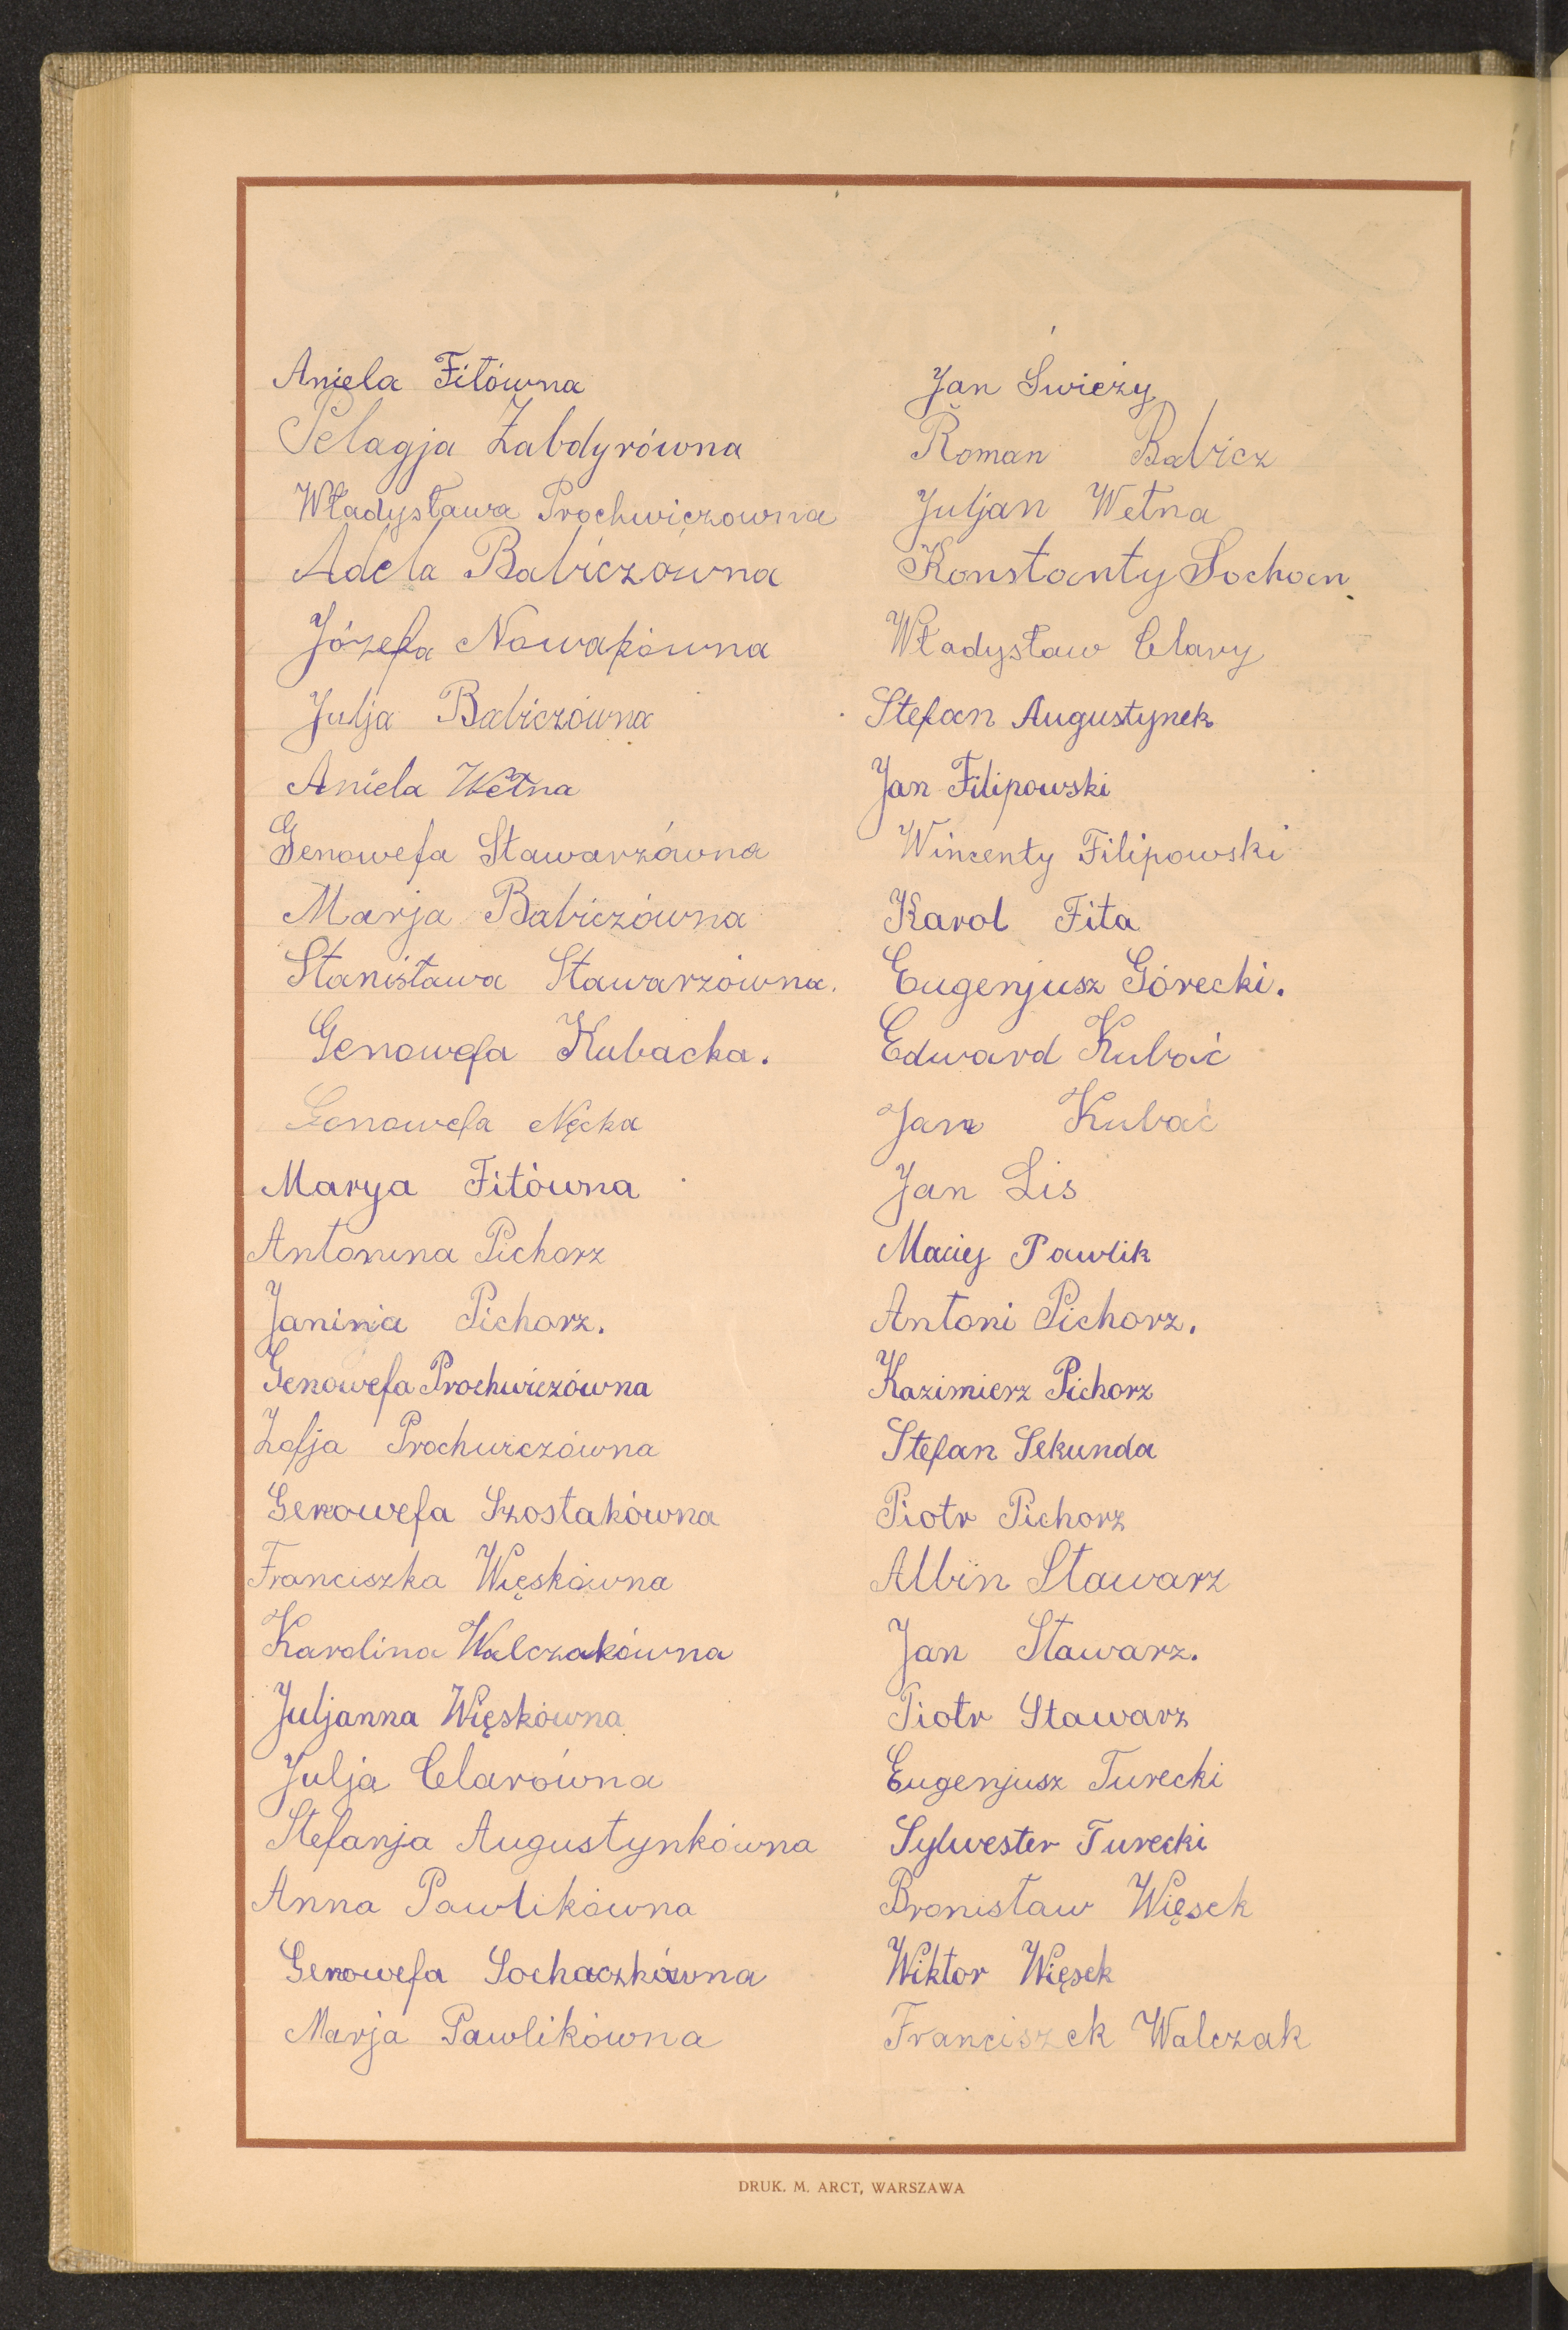 Aniela Fitówna
Pelagja Żabdyrówna
Władysława Prochwiczowna
Adela Babiczówna
Józefa Nowakówna
Julja Babiczówna
Aniela Wełna
Genowefa Stawarzówna
Marja Babiczówna
Stanisława Stawarzówna.
Genowefa Kubacka.
Genowefa Nęcka
Marya Fitówna
Antonina Pichorz
Janina Pichorz.
Genowefa Prochwiczówna
Zofja Prochwiczówna
Genowefa Szostakówna
Franciszka Więskówna
Karolina Walczakówna
Juljanna Więskówna
Julja Clarówna
Stefanja Augustynkówna
Anna Pawlikówna
Genowefa Sochaczkówna
Marja Pawlikówna
Jan Świeży
Roman Babicz
Juljan Wełna
Konstanty Sochan
Władysław Clary
Stefan Augustynek
Jan Filipowski
Wincenty Filipowski
Karol Fita
Eugenjusz Górecki.
Edward Kubać
Jan Kubać
Jan Lis
Maciej Pawlik
Antoni Pichorz.
Kazimierz Pichorz
Stefan Sekunda
Piotr Pichorz
Albin Stawarz
Jan Stawarz.
Piotr Stawarz
Eugenjusz Turecki
Sylwester Turecki
Bronisław Więsek
Wiktor Więsek
Franciszek Walczak
DRUK. M. ARCT, WARSZAWA